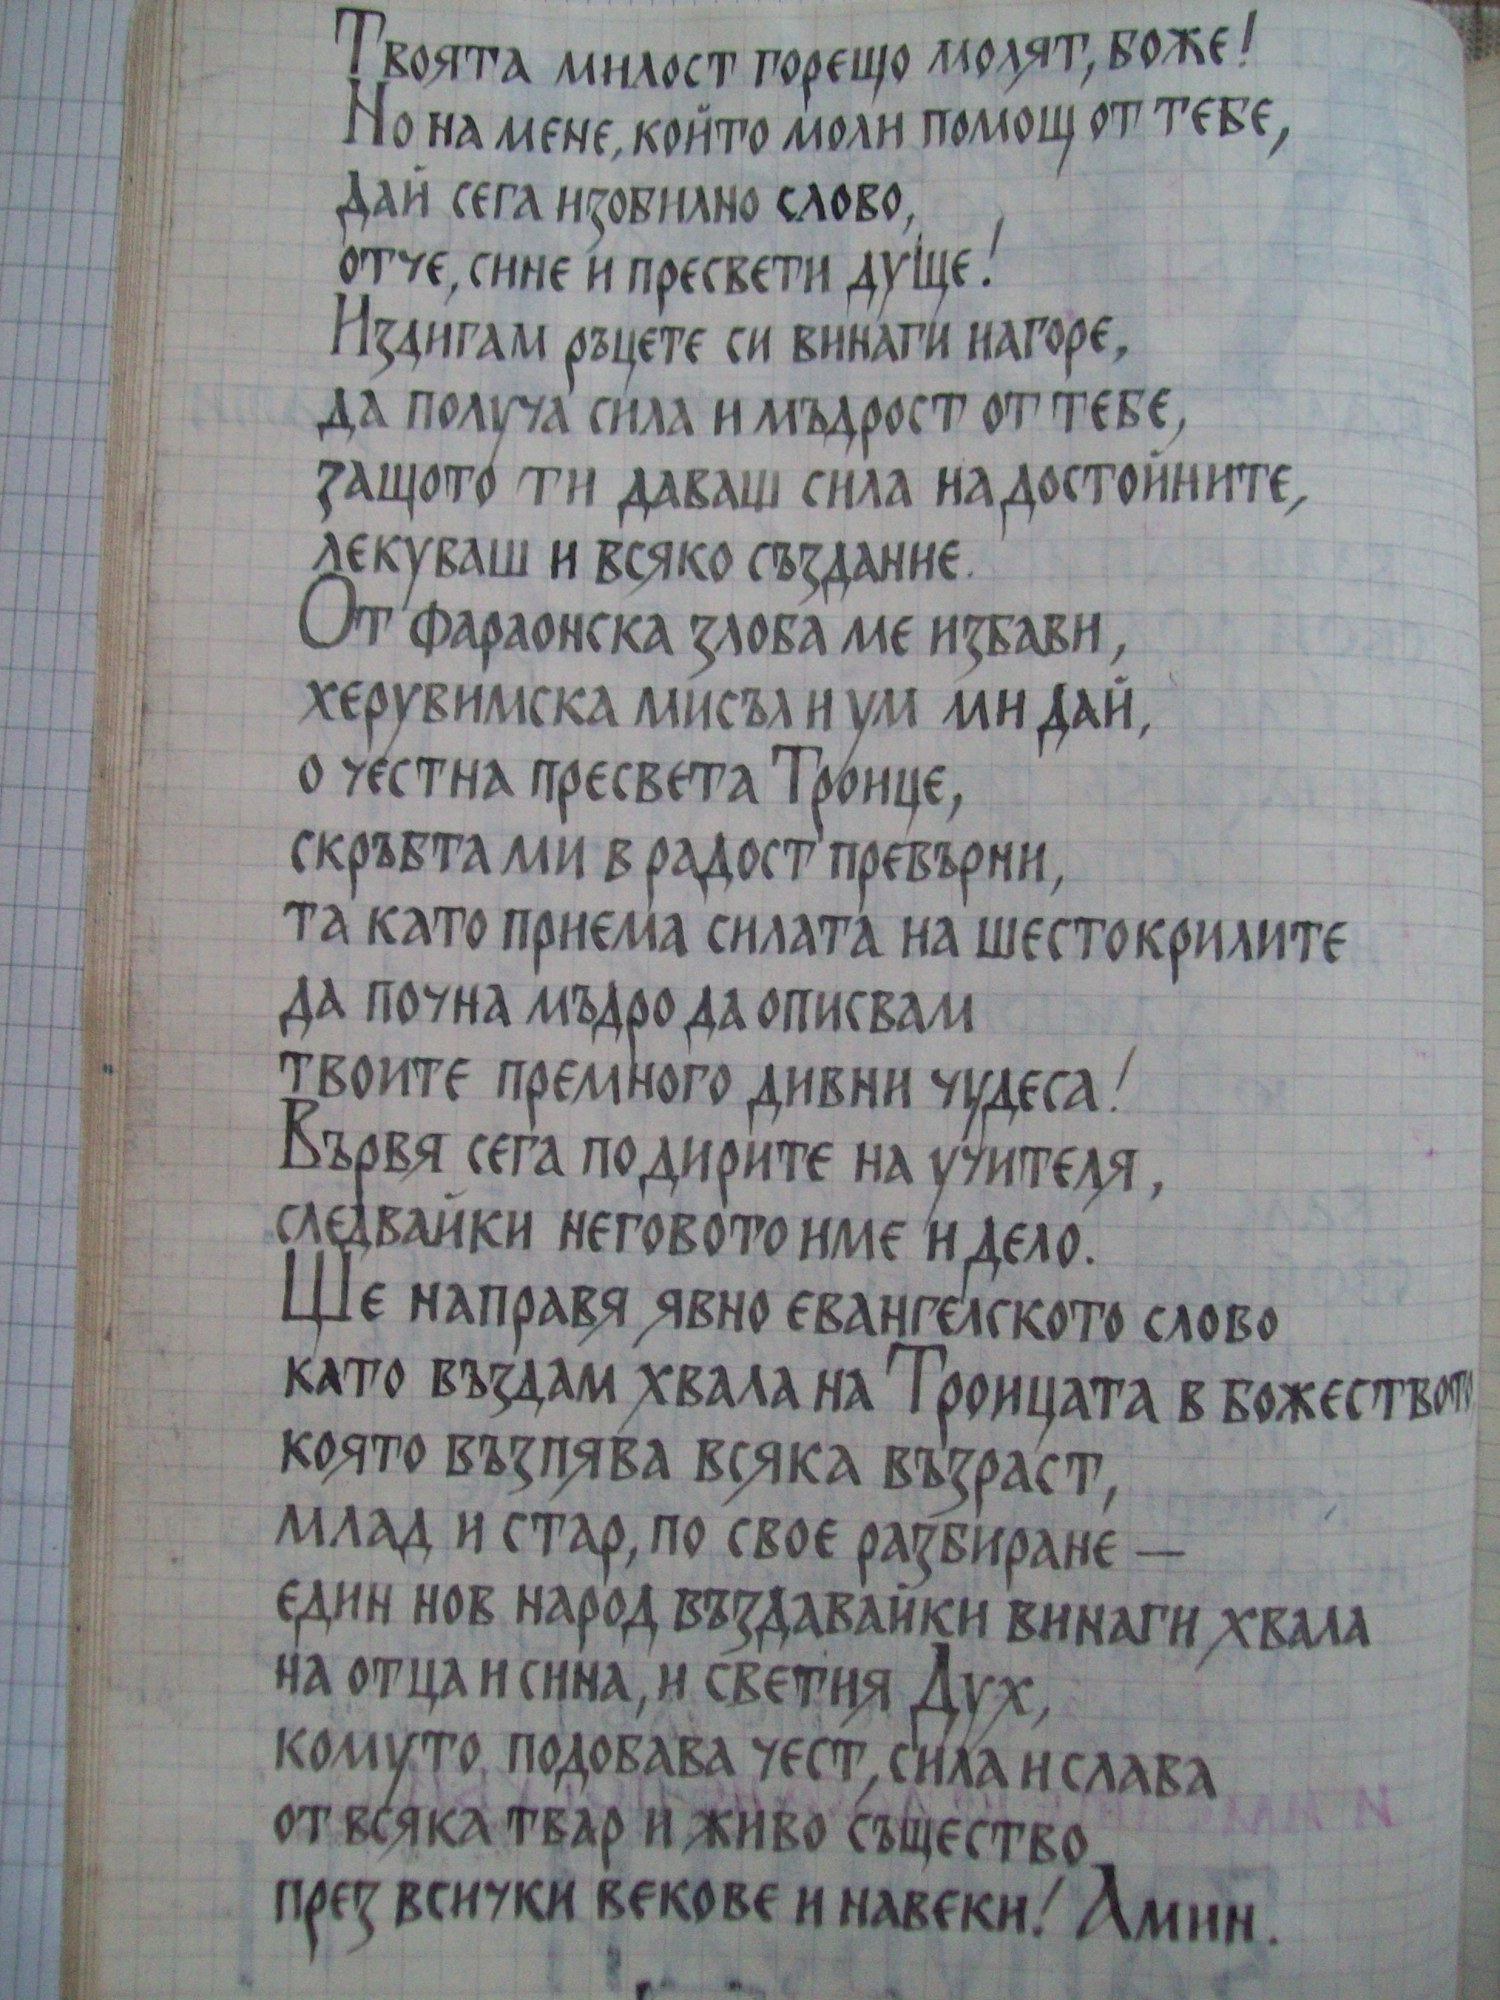 Твоята милост горещо молят, Боже!
Но на мене, който моли помощ от тебе,
дай сега изобилно слово,
отче, сине и пресвети душе!
Издигам ръцете си винаги нагоре,
да получа сила и мъдрост от тебе,
защото ти даваш сила на достойните,
лекуваш и всяко създание.
От фараонска злоба ме избави,
херувимска мисъл и ум ми дай,
о честна пресвета Троице,
скръбта ми в радост превърни,
та като приема силата на шестокрилите
да почна мъдро да описвам
твоите премного дивни чудеса!
Вървя сега по дирите на учителя,
следвайки неговото име и дело.
Ще направя явно евангелското слово
като въздам хвала на Троицата в божеството
която възпява всяка възраст,
млад и стар, по свое разбиране —
един нов народ въздавайки винаги хвала
на отца и сина, и светия Дух,
комуто подобава чест, сила и слава
от всяка твар и живо същество
през всички векове и навеки! Амин.